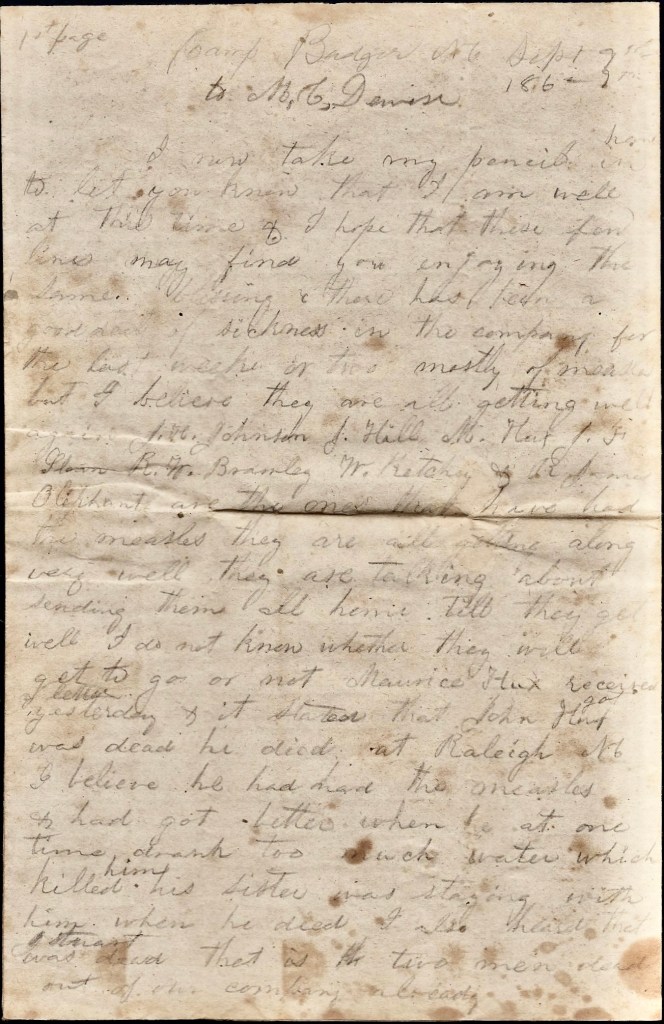 1st page
Camp Badger NC Sept
186
to M, C, Dewise.
I now take my pencil in
to let you know that I am well
at this time & I hope that these few
lines may find you enjoying the
same. & there has been a
good of sickness in the company for
the last weeks or two mostly of
but I believe they are all getting well
again J. Johnson J. Hill M. Hux J.
R. W. Bramley W. Ketchey &
Oliphant are the ones that have had
the measles they are all along
very well they are talking about
sending them all home till they get
well I do not know whether they will
get to go or not Maurice Hux received
a letter
yesterday & it stated that John Hux
was dead he died at Raleigh NC
I believe he had had the measles
& had got better when he at one
time drank too much water which
killed him his sister was staying with
him when he died I also heard that
was dead that is two men dead
out of our company already